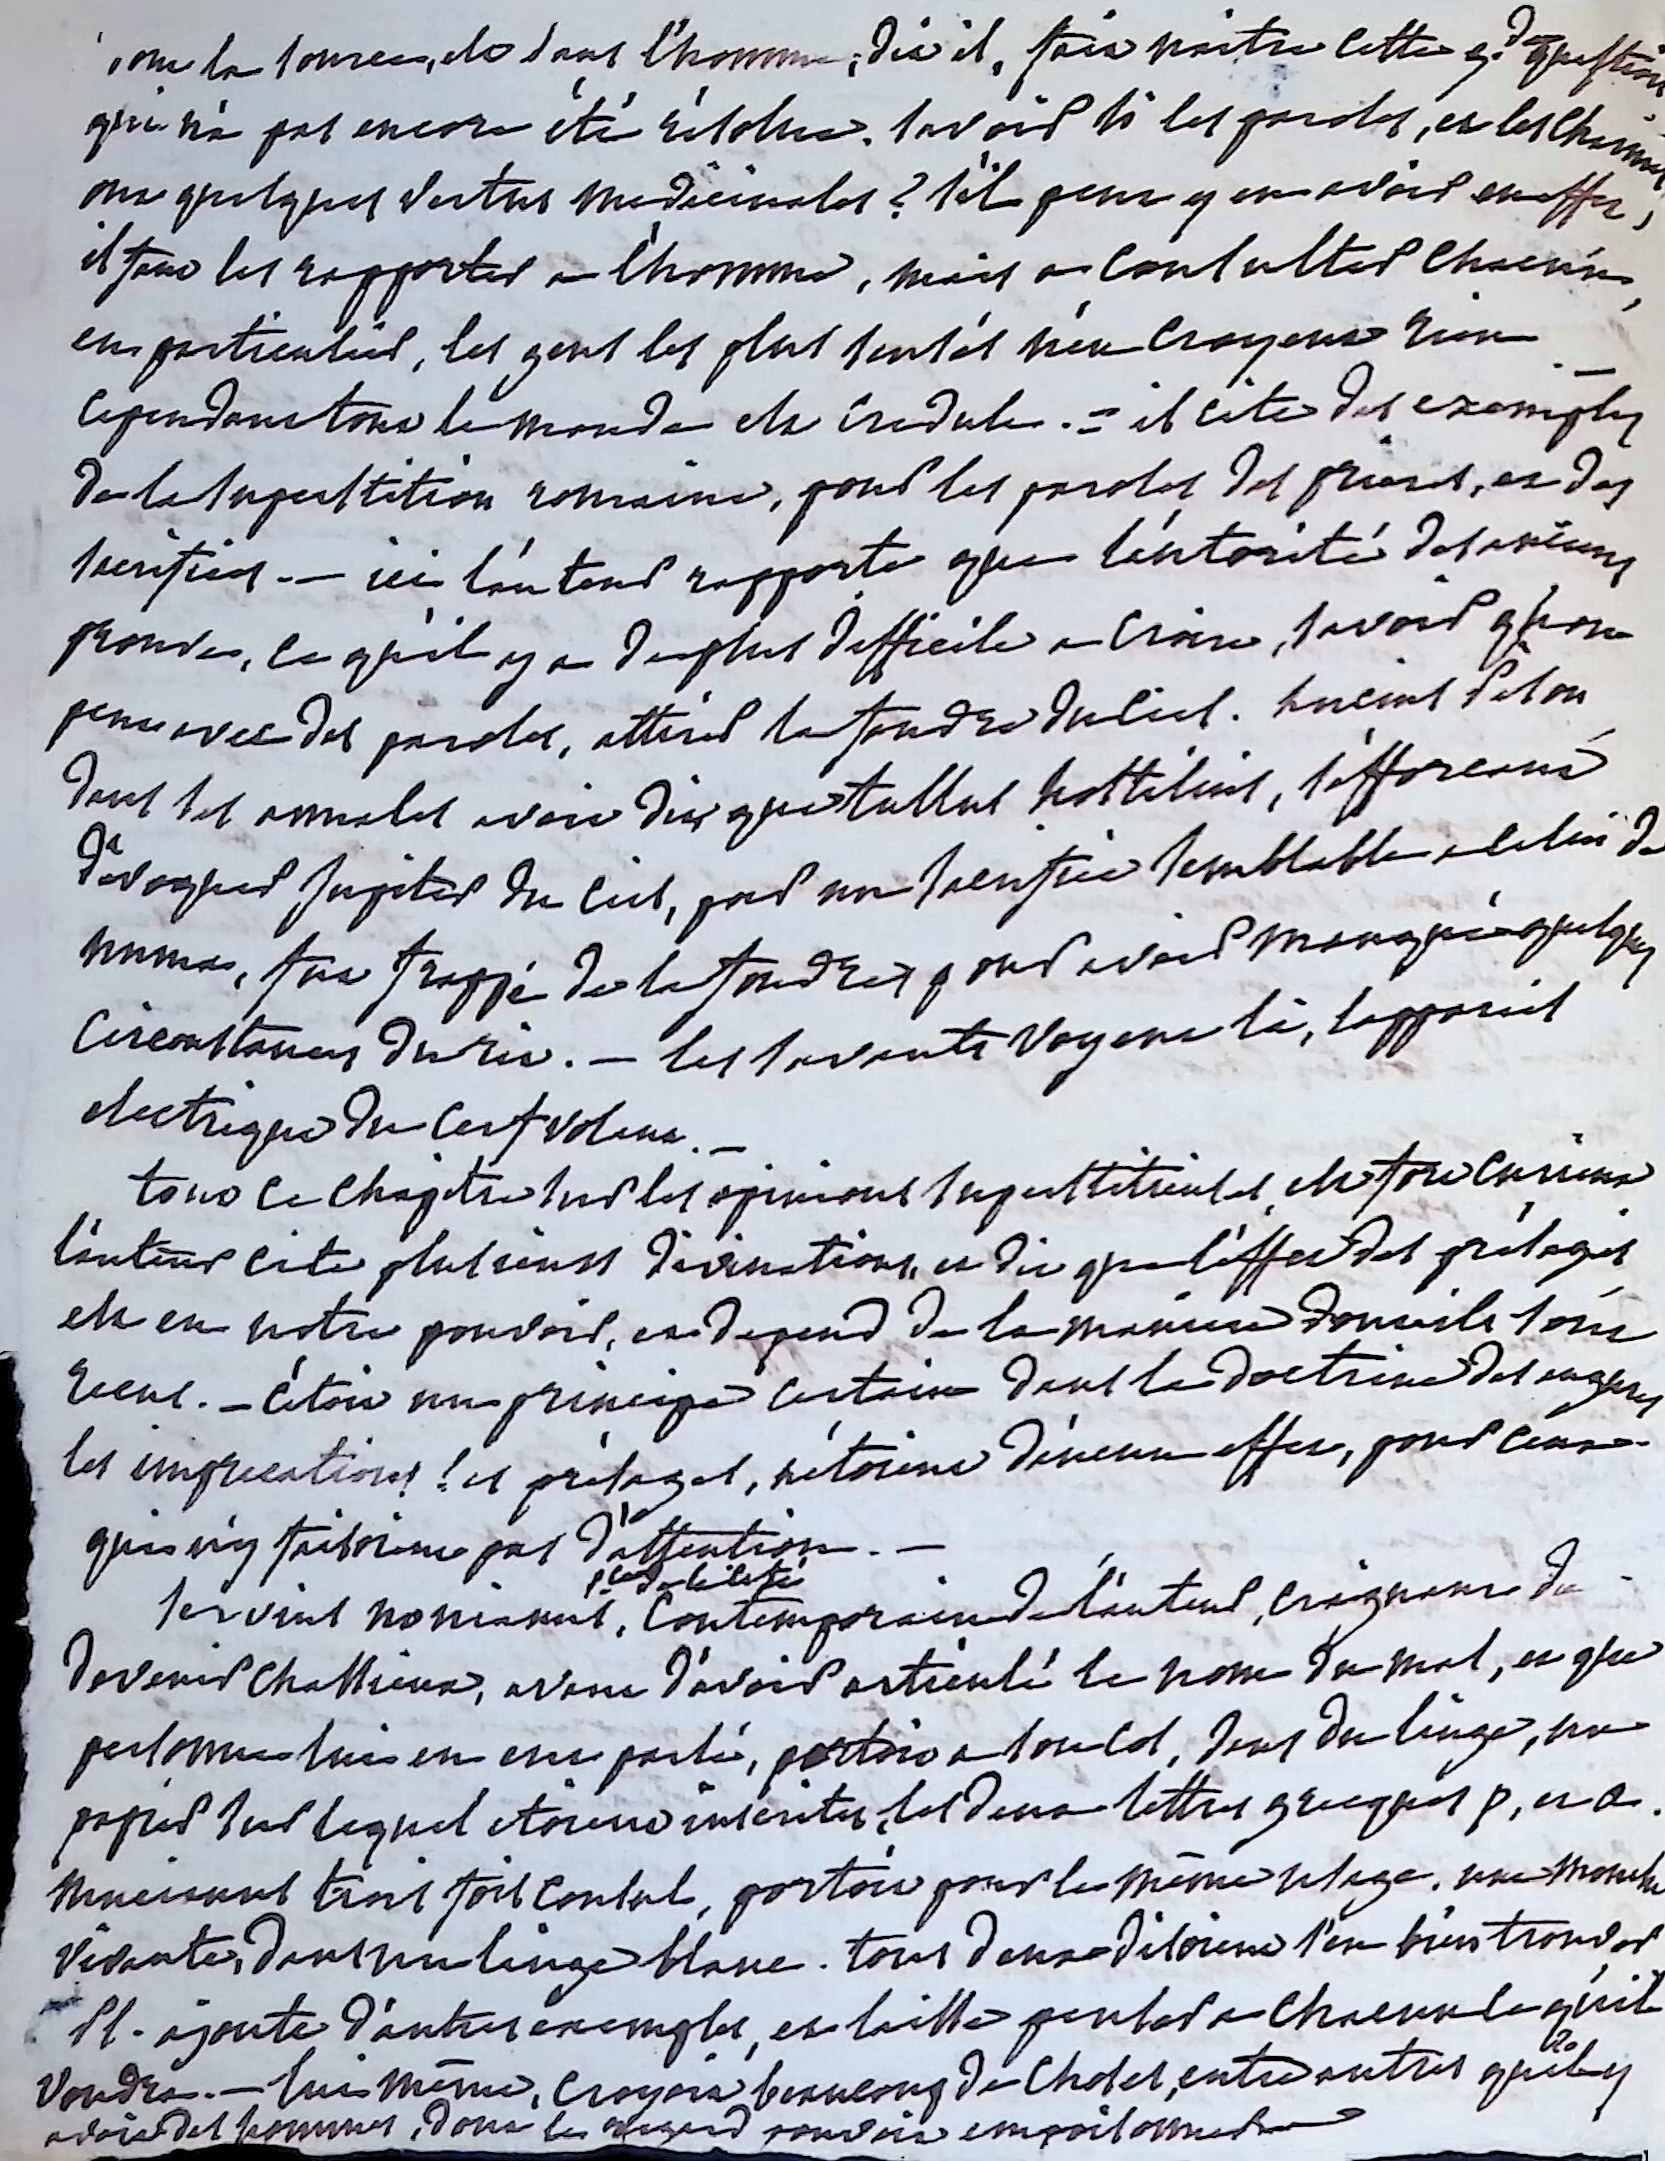 dont la source, est dans l'homme, dit il, fait naitre cette gde question
qui n'a pas encore été résolue. savoir si les paroles, et les charmes
ont quelques vertus medicinales? s'il peut y en avoir en effet,
il faut les rapporter a l'homme, mais a consulter chacun,
en particulier, les gens les plus sensés n'en croyent rien
cependant tout le monde est credule. = il cite des exemples
de la superstition romaine, pour les paroles des prieres, et des
sacrifices. — ici l'auteur rapporte que l'autorité des anciens
prouve, ce qu'il y a de plus difficile a croire, savoir qu'on
peut avec des paroles, attirer la foudre du ciel. Lucius Pison
dans ses annales avait dit que tullus hostilius, s'efforcant
d'évoquer Jupiter du ciel, par un sacrifice semblable a celui de
numa, fut frappé de la foudre, pour avoir manqué quelques
circonstances du rit. — les savants voyent là, l'appareil
electrique du cerf volant. —
tout ce chapitre sur les opinions superstitieuses, est fort curieux
l'auteur cite plusieurs divinations, et dit que l'effet des présages
est en notre pouvoir, et depend de la maniere dont ils sont
recus. — c'étoit un principe certain dans la doctrine des augures
les imprecations! et présages, n'étoient d'aucun effet, pour ceux
qui n'y faisoient pas d'attention. —
Servius nonianus, pr de la cité contemporain de l'auteur, craignant de
devenir chassieux, avant d'avoir articulé le nom du mal, et que
personne lui en eut parlé, portoit a son col, dans du linge, un
papier sur lequel etoient inscrites, les deux lettres grecques p, et a.
Mucianus trois fois consul, portoit pour le même usage, une mouche
vivante, dans un linge blanc. tous deux disoient s'en bien trouver
Pl. ajoute d'autres exemples, et laisse penser a chacun ce qu'il
voudra. — lui même, croyoit beaucoup de choses, entre autres qu'il y
avoit des hommes, dont le regard pouvoit empoisonner